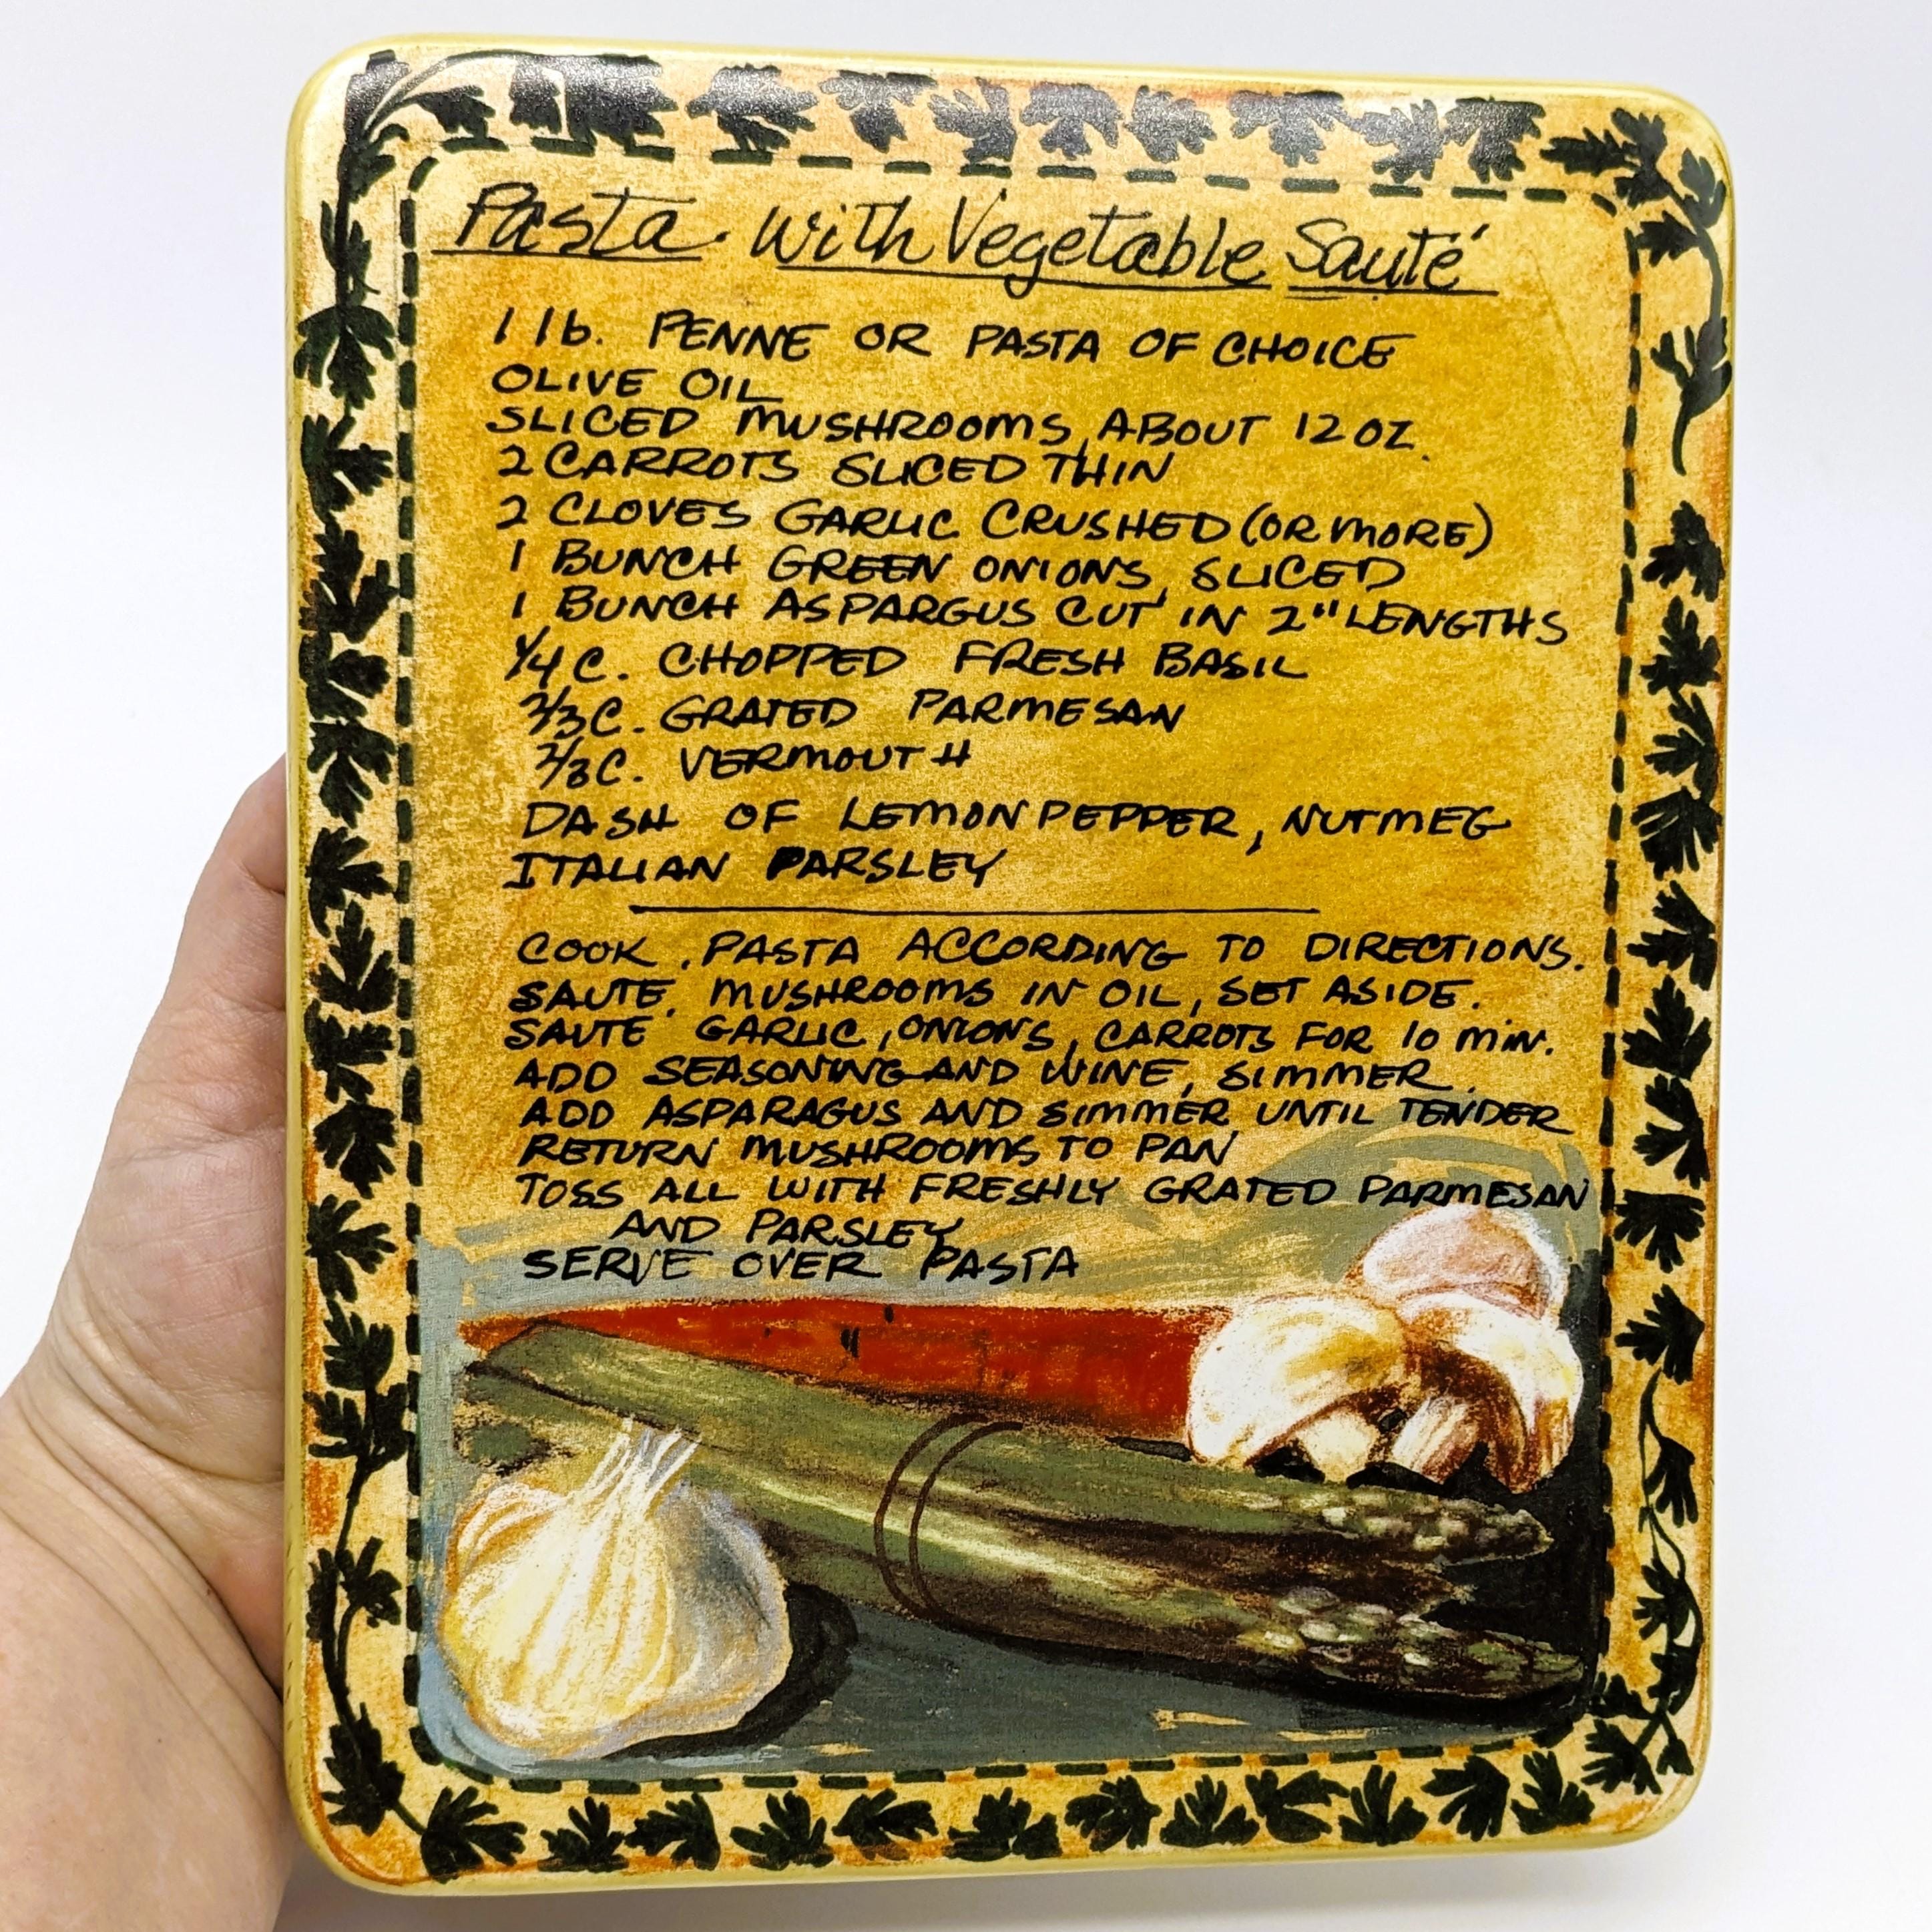 Pasta with Vegetable Sauté
1 lb. PENNE OR PASTA OF CHOICE
OLIVE OIL
SLICED MUSHROOMS, ABOUT 12 OZ.
2 CARROTS SLICED THIN
2 CLOVES GARLIC CRUSHED (OR MORE)
1 BUNCH GREEN ONIONS, SLICED
1 BUNCH ASPARGUS CUT IN 2" LENGTHS
1/4 C. CHOPPED FRESH BASIL
2/3 C. GRATED PARMESAN
2/3 C. VERMOUTH
DASH OF LEMON PEPPER, NUTMEG
ITALIAN PARSLEY
COOK PASTA ACCORDING TO DIRECTIONS.
SAUTE MUSHROOMS IN OIL, SET ASIDE.
SAUTE GARLIC, ONIONS, CARROTS FOR 10 MIN.
ADD SEASONING AND WINE, SIMMER.
ADD ASPARAGUS AND SIMMER UNTIL TENDER
RETURN MUSHROOMS TO PAN
TOSS ALL WITH FRESHLY GRATED PARMESAN
AND PARSLEY
SERVE OVER PASTA